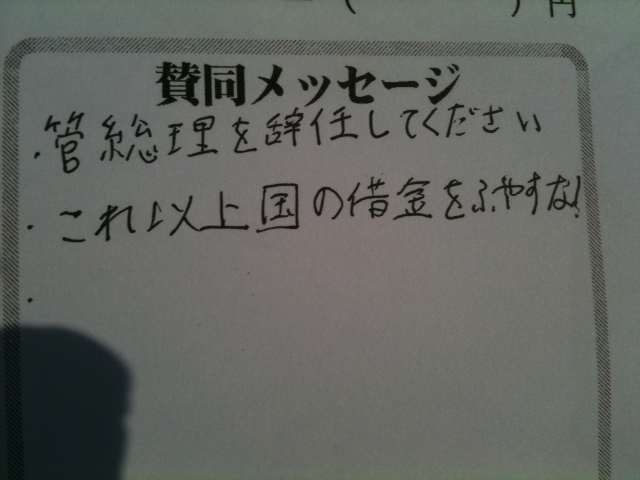 ( ) 円
賛同メッセージ
・管総理を辞任してください
・これ以上国の借金をふやすな!
・